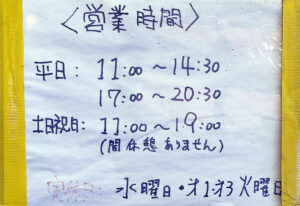 〈営業時間〉
平日：11:00〜14:30
17:00〜20:30
土日祝日：11:00〜19:00
(間休憩ありません)
定休日：水曜日・オ1オ3火曜日